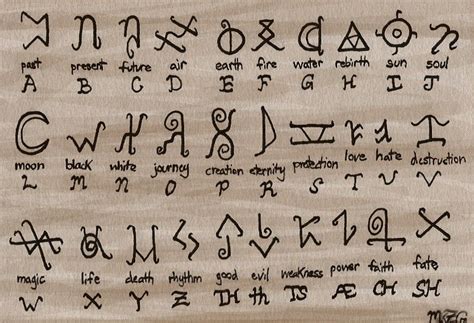 past present future air earth fire water rebirth sun soul
A B C D E F G H I J
moon black white journey creation eternity protection love hate destruction
L M N O P R S T U V
magic life death rhythm good evil weakness power faith fate
W Y Z TH th TS Æ CH SH